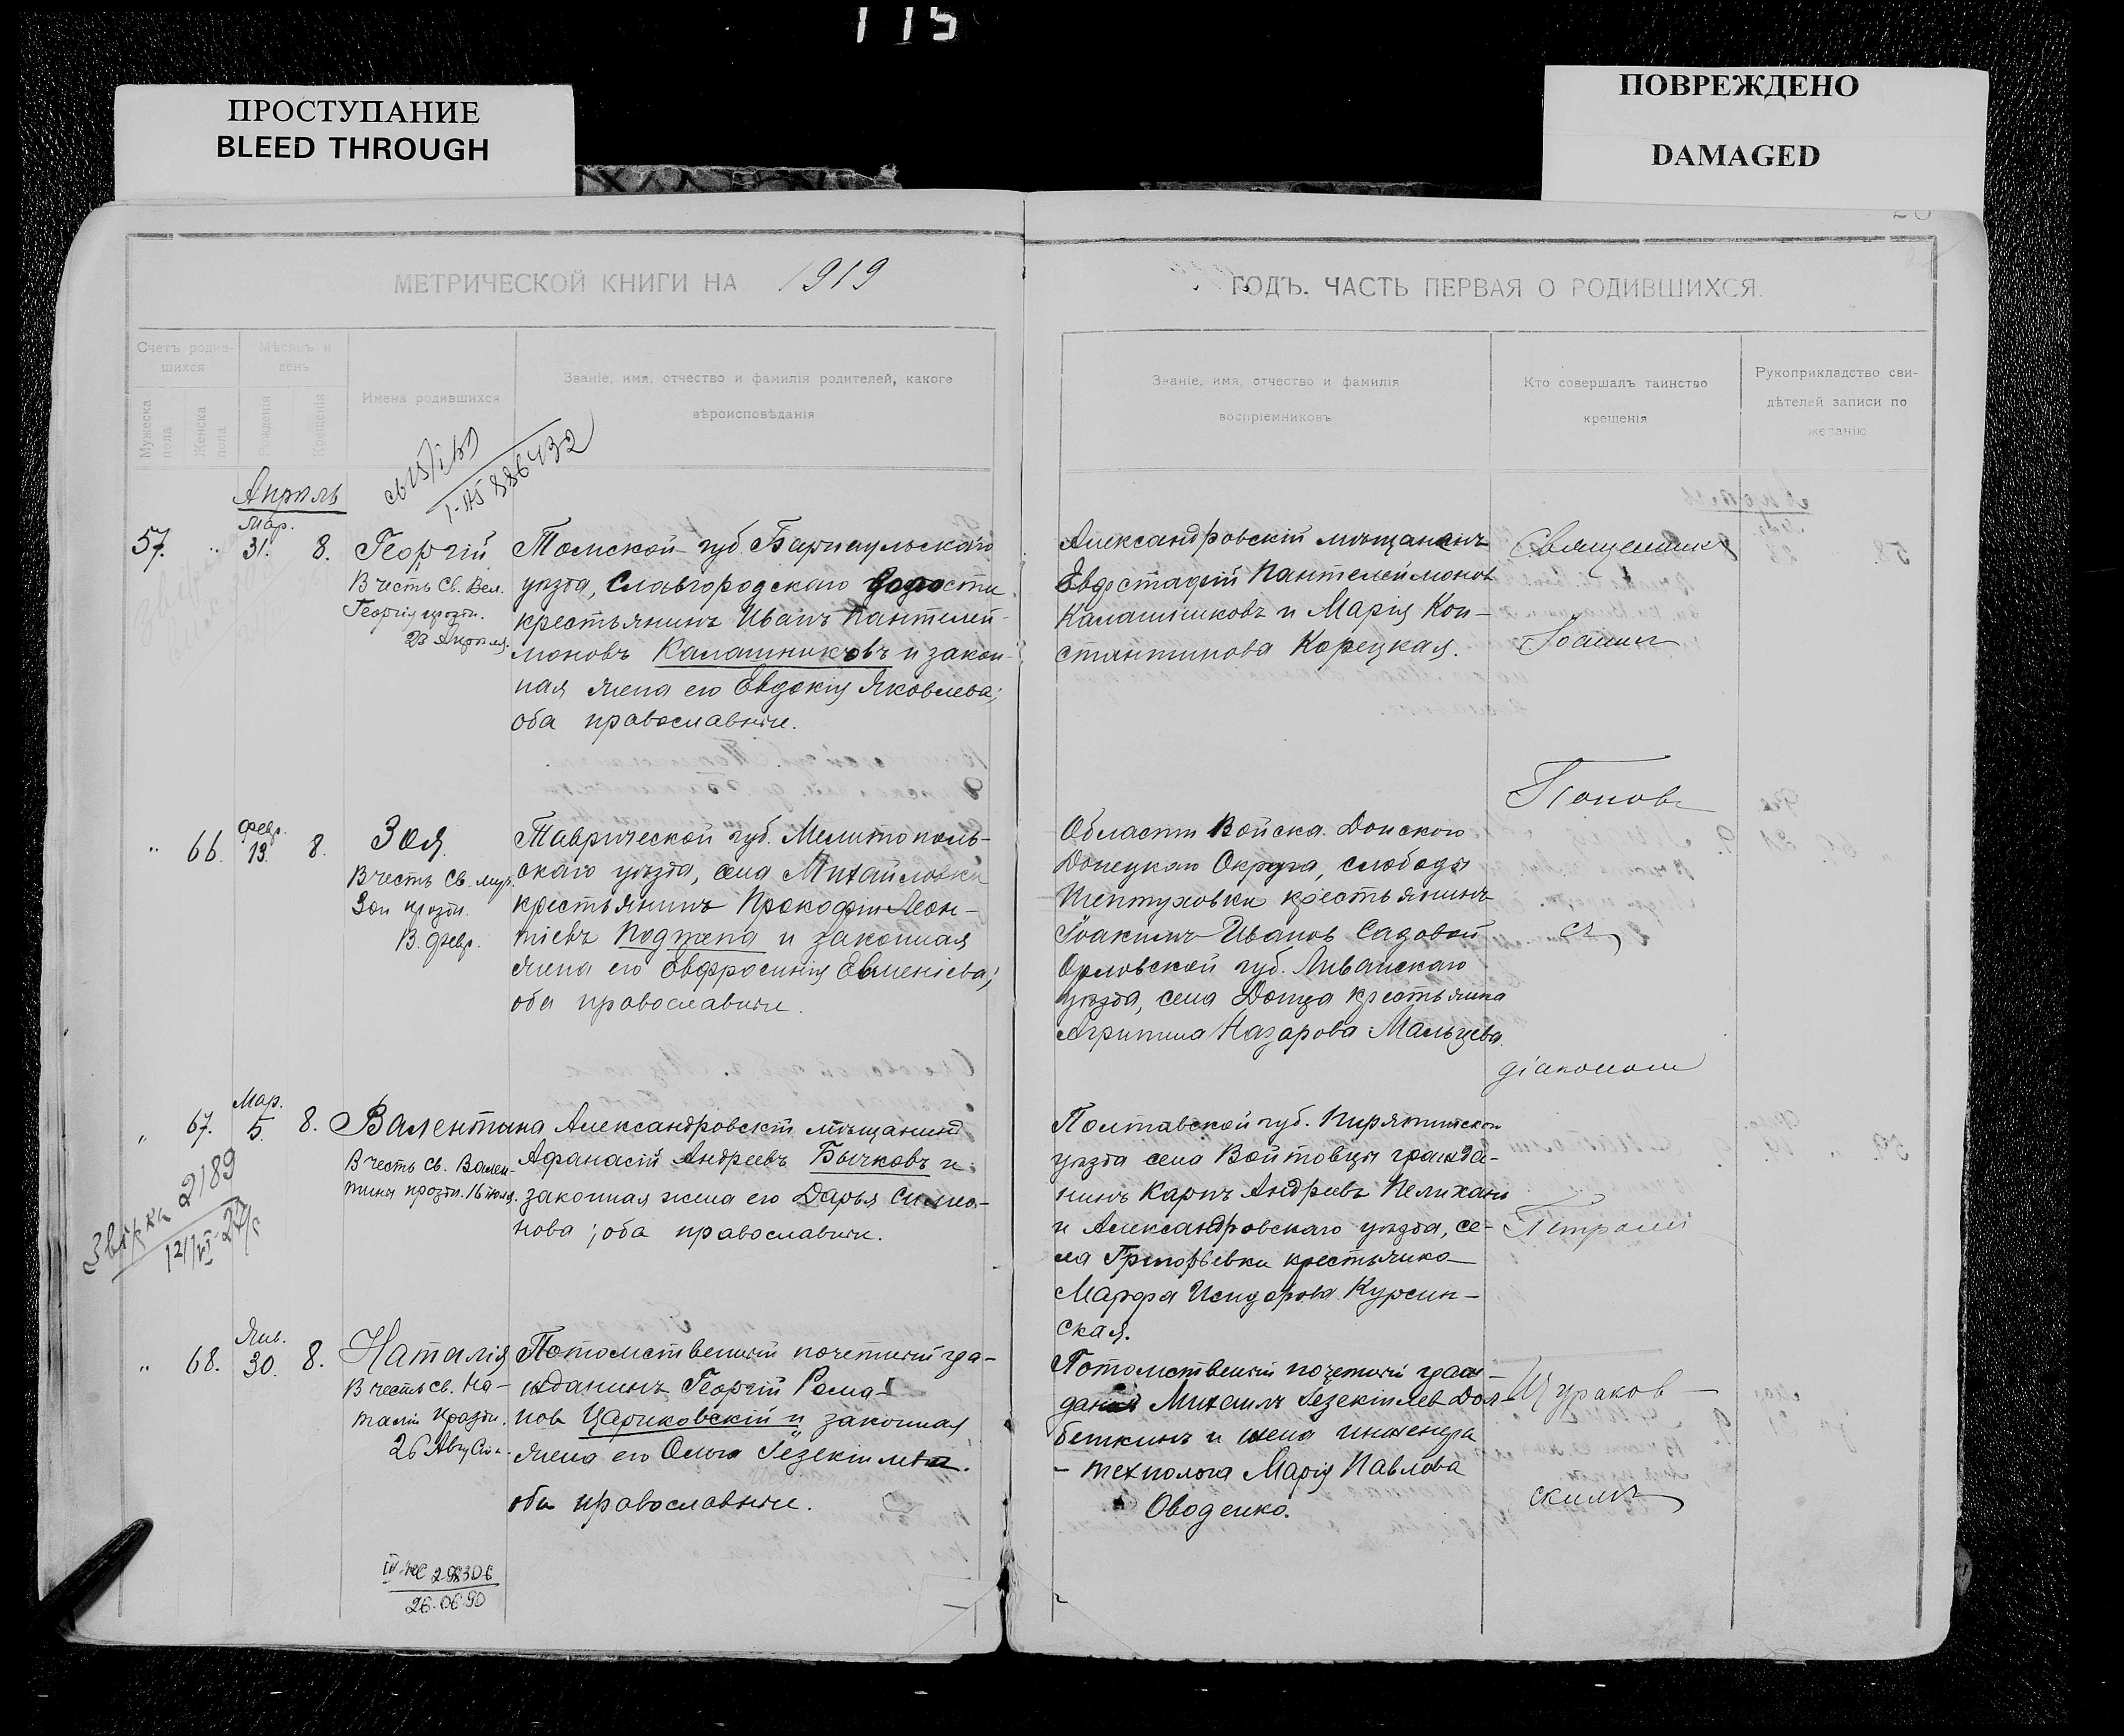 115
ПРОСТУПАНИЕ
BLEED THROUGH
ПОВРЕЖДЕНО
DAMAGED
МЕТРИЧЕСКОЙ КНИГИ НА 1919
ГОДЪ. ЧАСТЬ ПЕРВАЯ О РОДИВШИХСЯ.
Счетъ родив-
шихся
Мѣсяцъ и
день
Мужеска
пола
Женска
пола
Рожденія
Крещенія
Имена родившихся
Званіе, имя, отчество и фамилія родителей, какого
вѣроисповѣданія
Званіе, имя, отчество и фамилія
воспріемниковъ
Кто совершалъ таинство
крещенія
Рукоприкладство сви-
дѣтелей записи по
желанію
886432
Апрѣль
57. " Мар. 31. 8.
Георгій
В честь Св. Вел.
Георгія праздн.
23 Апрѣля.
Томской губ. Барнаульскаго
уѣзда, Славгородскаго волости
крестьянинъ Иванъ Пантелей-
моновъ Калашниковъ и закон-
ная жена его Евдокія Яковлева;
оба православные.
Александровскій мѣщанинъ
Евфстафій Пантелеймонов
Калашниковъ и Марія Кон-
стантинова Корецкая.
Священникъ
Іоаннъ
Поповъ
" 66. Февр. 13. 8.
Зоя
В честь Св. муч.
Зои праздн.
13. Февр.
Таврической губ. Мелитополь-
скаго уѣзда, села Михайловки
крестьянинъ Прокофій Леон-
тіевъ Поджепа и законная
жена его Евфросинія Евменіева;
оба православные.
Области Войска Донского
Донецкаго Округа, слободы
Шептуховки крестьянинъ
Іоакимъ Иванов Садовой
Орловской губ. Ливенскаго
уѣзда, села крестьянка
Агрипина Назарова Мальцева.
съ
діакономъ
" 67. Мар. 5. 8.
Валентина
В честь св. Вален-
тины праздн. 16 іюля.
Александровскій мѣщанинъ
Афанасій Андреевъ Бычковъ и
законная жена его Дарья Симео-
нова; оба православные.
Звѣрка 2189
Полтавской губ. Пирятинскаго
уѣзда села Войтовцы гражда-
нинъ Карпъ Андреевъ Пелихань
и Александровскаго уѣзда, се-
ла Григорьевки крестьянка
Марфа Исидорова Курсин-
ская.
Петромъ
" 68. Янв. 30. 8.
Наталія
В честь св. На-
таліи праздн.
26 Августа.
Потомственный почетный гра-
жданинъ Георгій Рома-
нов Цариковскій и законная
жена его Ольга Іезекіилева.
оба православные.
Потомственный почетный граж-
данин Михаилъ Іезекіилев Дол-
беткинъ и жена инженера
- технолога Марія Павлова
Оводенко.
Щураков-
скимъ
26.06.90